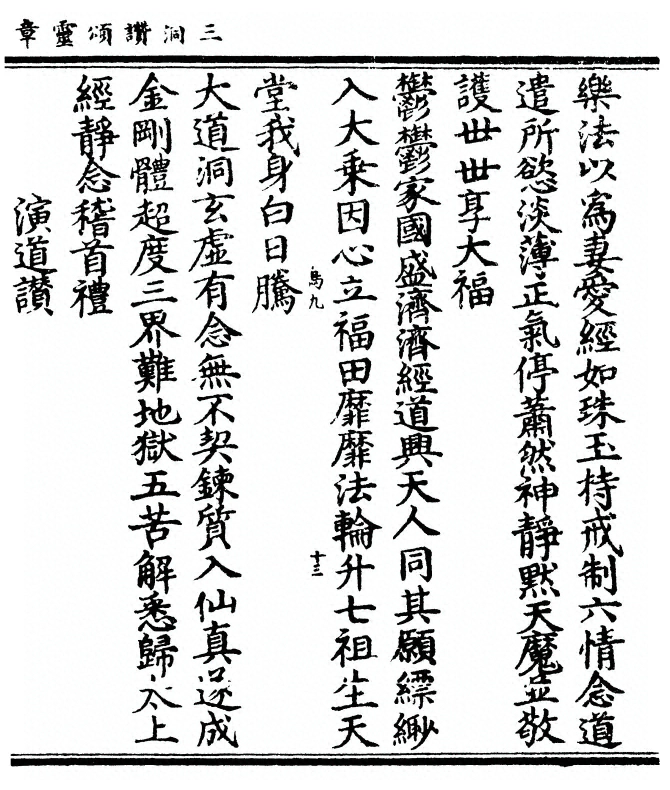 三洞讚頌靈章
樂法以為妻愛經如珠玉持戒制六情念道
遣所慾淡薄正氣停蕭然神靜默天魔並敬
護世世享大福
鬱鬱家國盛濟濟經道興天人同其願縹緲
入大乘因心立福田靡靡法輪升七祖生天
堂我身白日騰
鳥九
十三
大道洞玄虛有念無不契鍊質入仙真遂成
金剛體超度三界難地獄五苦解悉歸太上
經靜念稽首禮
演道讚